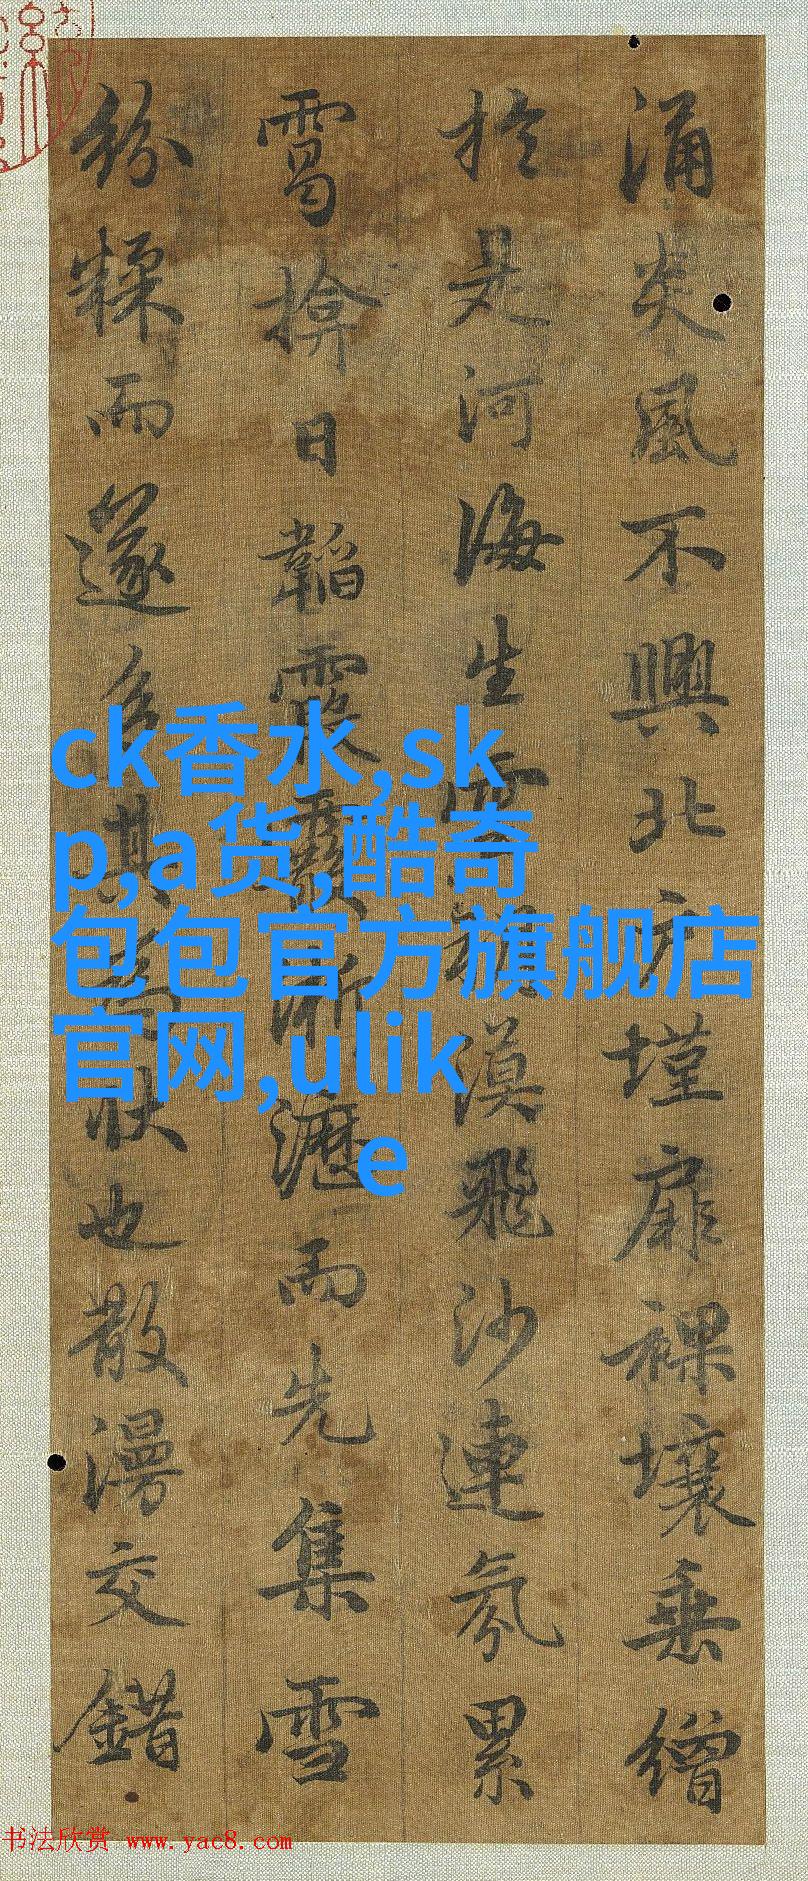 涌炎風不興北户墐扉裸壤垂繒
於是河海生雲朔漠飛沙連氛累
霭揜日韜霞霰淅瀝而先集雪
紛糅而遂多其為狀也散漫交錯
ck香水,sk
p,a货,酷奇
包包官方旗舰店
官网,ulik
e
书法欣赏 www.yac8.com